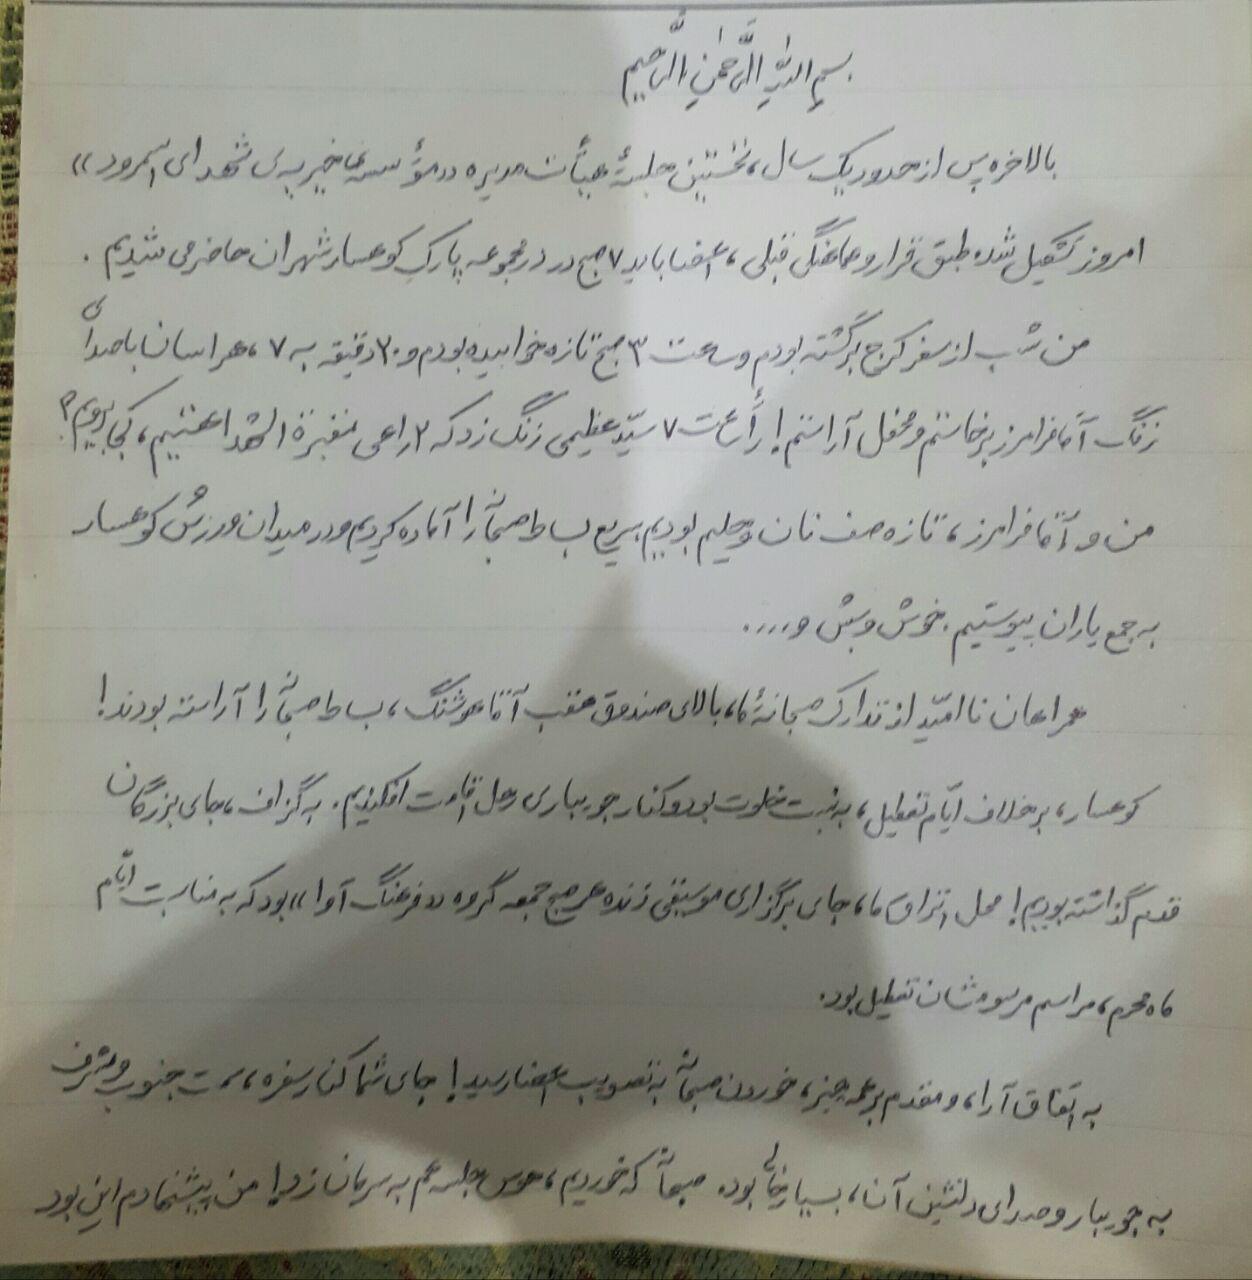 بسم الله الرحمن الرحیم
بالاخره پس از حدود یک سال، نخستین جلسهٔ هیأت مدیره «مؤسسه خیریه‌ی شهدای اسمرود»
امروز تشکیل شد. طبق قرار و هماهنگی قبلی، اعضا باید ۷ صبح در مجموعه پارک کوهسار شهران حاضر می شدیم.
من شب از سفر کرج برگشته بودم و ساعت ۳ صبح تازه خوابیده بودم و ۲۰ دقیقه به ۷، هراسان با صدای
زنگ آقا فرامرز برخاستم و محفل آراستم! رأس ساعت ۷ سیّد عظیمی زنگ زد که ما راهی مقبرة الشهدا هستیم، کجا برویم؟
من و آقا فرامرز، تازه صف نان و حلیم بودیم. سریع بساط صبحانه را آماده کردیم و در میدان ورزش کوهسار
به جمع یاران پیوستیم. خوش و بش و....
همراهان ناامید از تدارک صبحانهٔ ما، بالای صندوق عقب آقا هوشنگ، بساط صبحانه را آراسته بودند!
کوهسار، بر خلاف ایّام تعطیل، به نسبت خلوت بود و کنار جویباری رحل اقامت افکندیم. به گزاف، جای بزرگان
قدم گذاشته بودیم! محل اتراق ما، جای برگزاری موسیقی زنده هر صبح جمعه گروه «فرهنگ آوا» بود که به مناسبت ایّام
ماه محرم، مراسم مرسومشان تعطیل بود.
به اتفاق آرا، و مقدم بر همه چیز، خوردن صبحانه به تصویب اعضا رسید! جای شما کنار سفره، سمت جنوب و مشرف
به جویبار و صدای دلنشین آن، بسیار خالی بود. صبحانه که خوردیم، هوس جلسه هم به سرمان زد! من پیشنهادم این بود